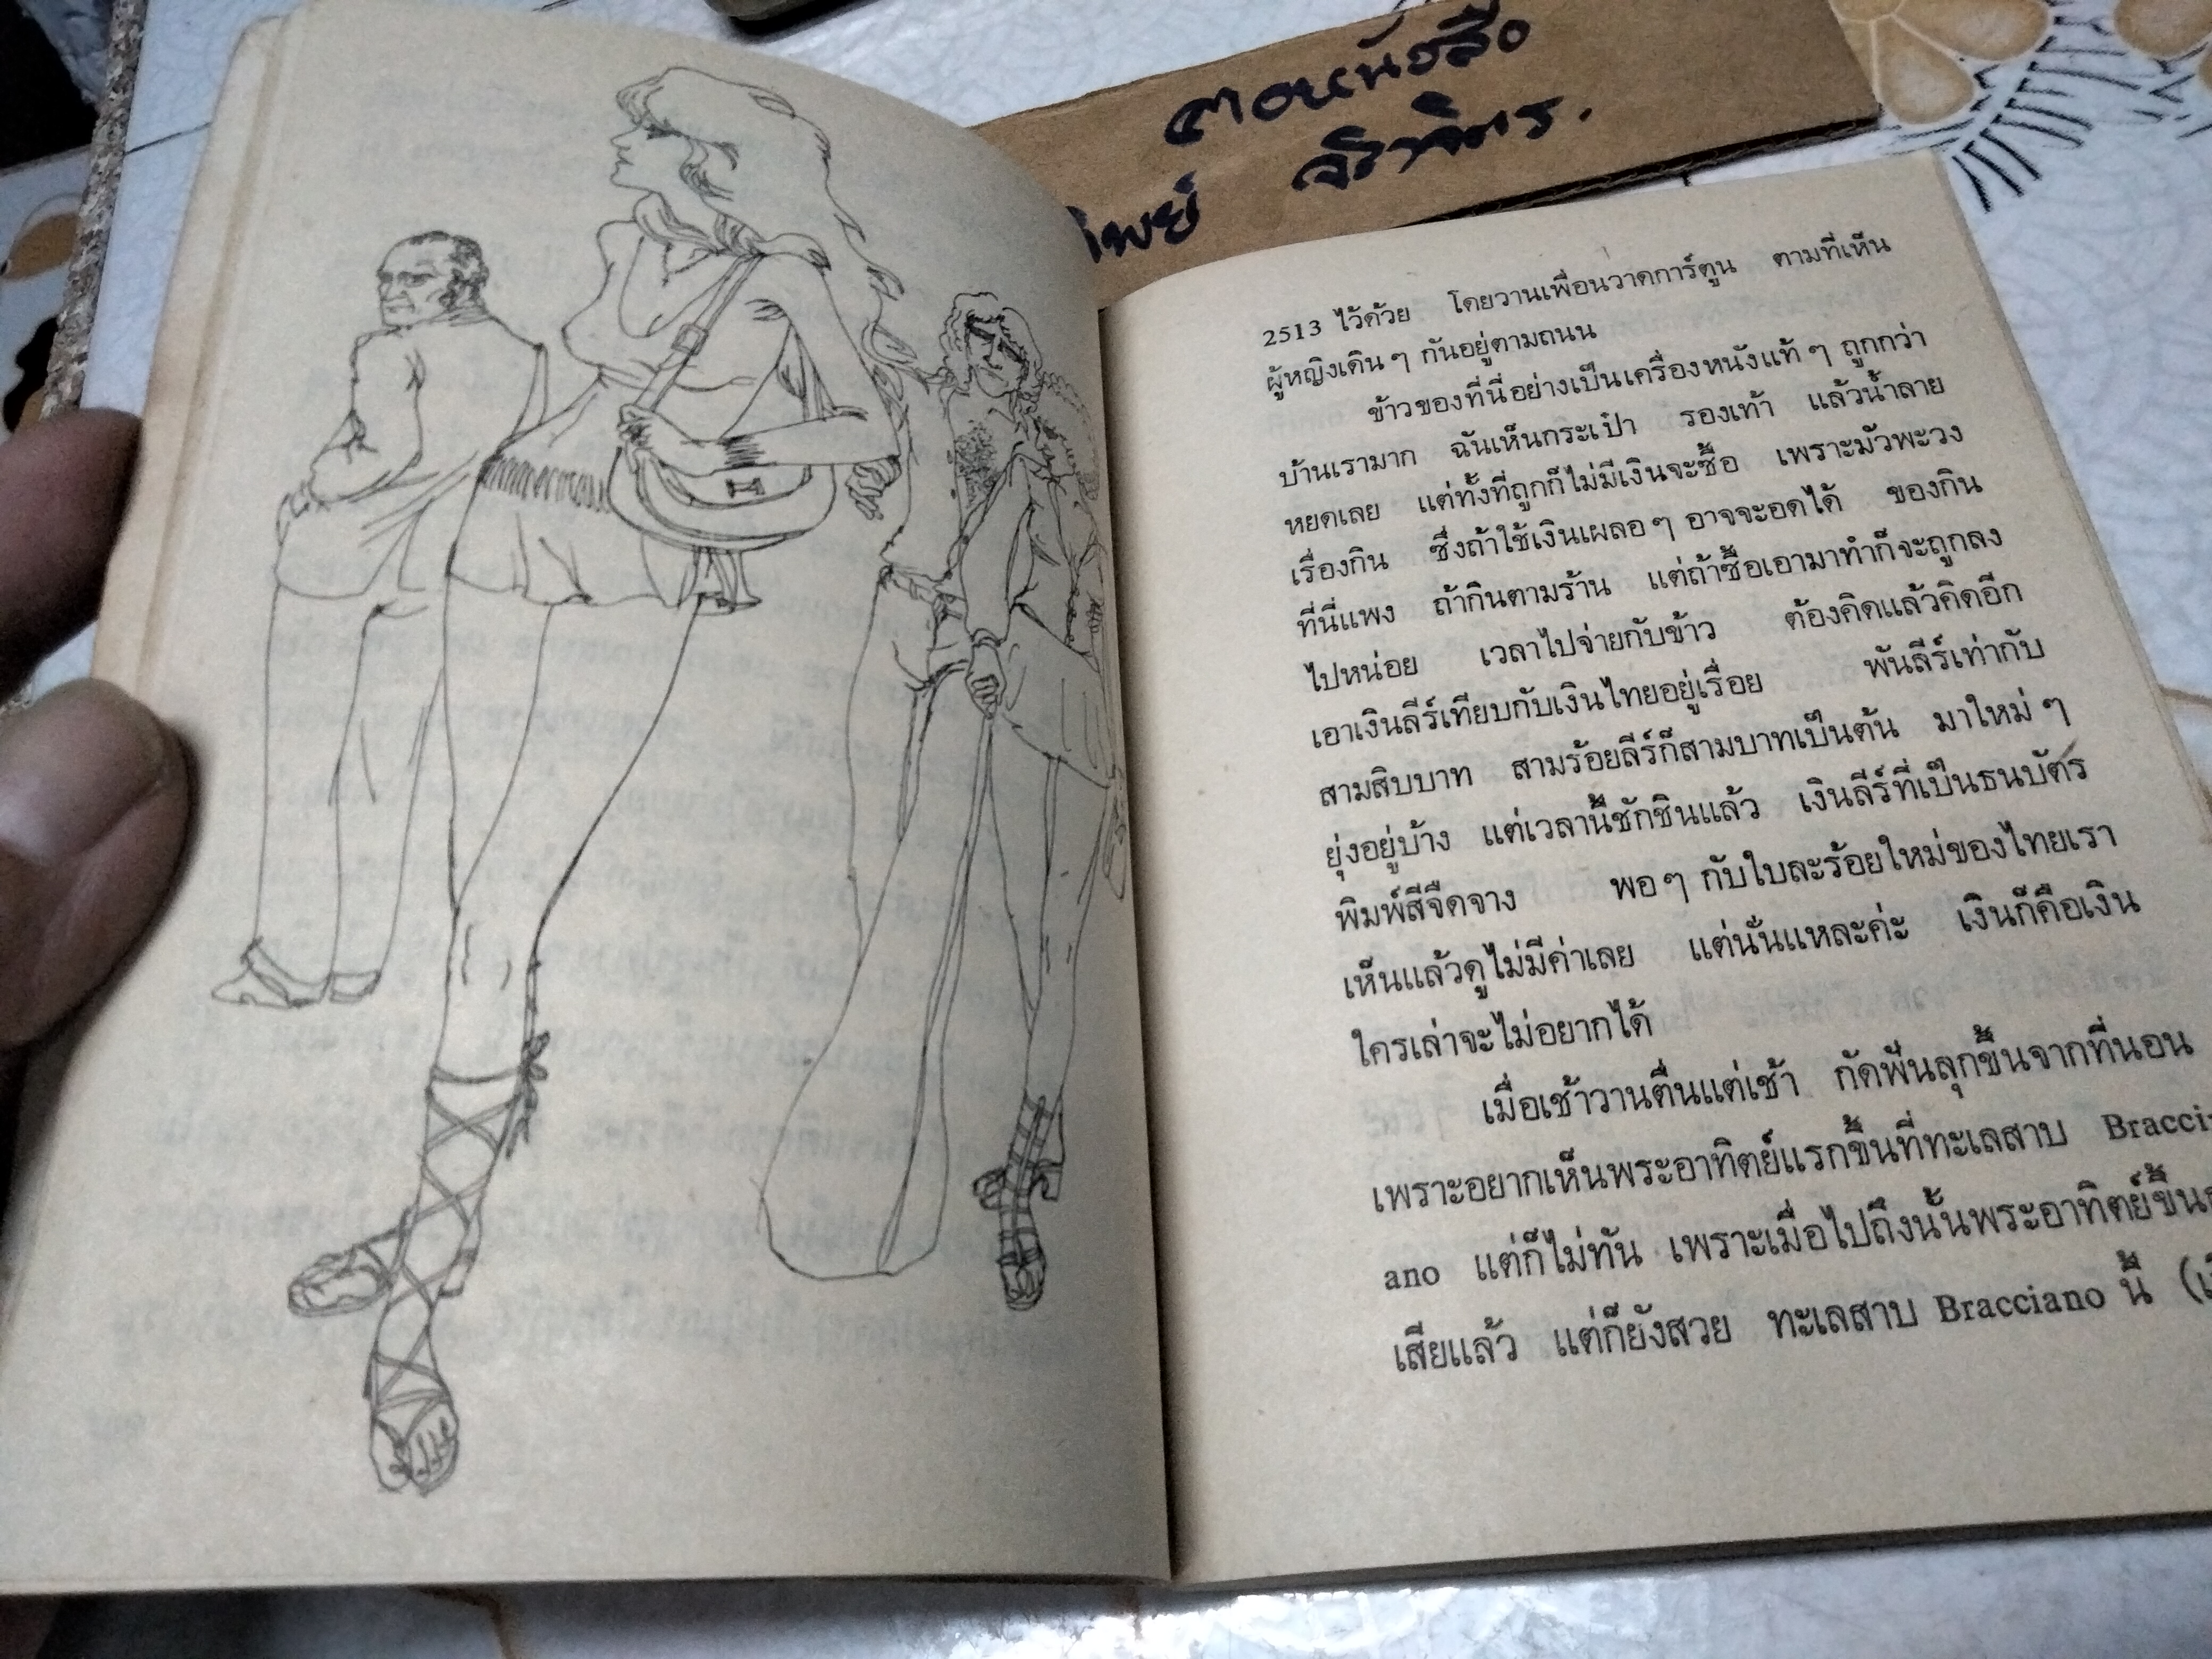 ตอหนังสือ
ทิพย์ จิราจิตร.
2513 ไว้ด้วย โดยวานเพื่อนวาดการ์ตูน ตามที่เห็น
ผู้หญิงเดิน ๆ กันอยู่ตามถนน
ข้าวของที่นี่อย่างเป็นเครื่องหนังแท้ ๆ ถูกกว่า
บ้านเรามาก ฉันเห็นกระเป๋า รองเท้า แล้วน้ำลาย
หยดเลย แต่ทั้งที่ถูกก็ไม่มีเงินจะซื้อ เพราะมัวพะวง
เรื่องกิน ซึ่งถ้าใช้เงินเผลอ ๆ อาจจะอดได้ ของกิน
ที่นี่แพง ถ้ากินตามร้าน แต่ถ้าซื้อเอามาทำก็จะถูกลง
ไปหน่อย เวลาไปจ่ายกับข้าว ต้องคิดแล้วคิดอีก
เอาเงินลีร์เทียบกับเงินไทยอยู่เรื่อย พันลีร์เท่ากับ
สามสิบบาท สามร้อยลีร์ก็สามบาทเป็นต้น มาใหม่ ๆ
ยุ่งอยู่บ้าง แต่เวลานี้ชักชินแล้ว เงินลีร์ที่เป็นธนบัตร
พิมพ์สีจืดจาง พอ ๆ กับใบละร้อยใหม่ของไทยเรา
เห็นแล้วดูไม่มีค่าเลย แต่นั่นแหละค่ะ เงินก็คือเงิน
ใครเล่าจะไม่อยากได้
เมื่อเช้าวานตื่นแต่เช้า กัดฟันลุกขึ้นจากที่นอน
เพราะอยากเห็นพระอาทิตย์แรกขึ้นที่ทะเลสาบ Bracci-
ano แต่ก็ไม่ทัน เพราะเมื่อไปถึงนั้นพระอาทิตย์ขึ้น
เสียแล้ว แต่ก็ยังสวย ทะเลสาบ Bracciano นี้